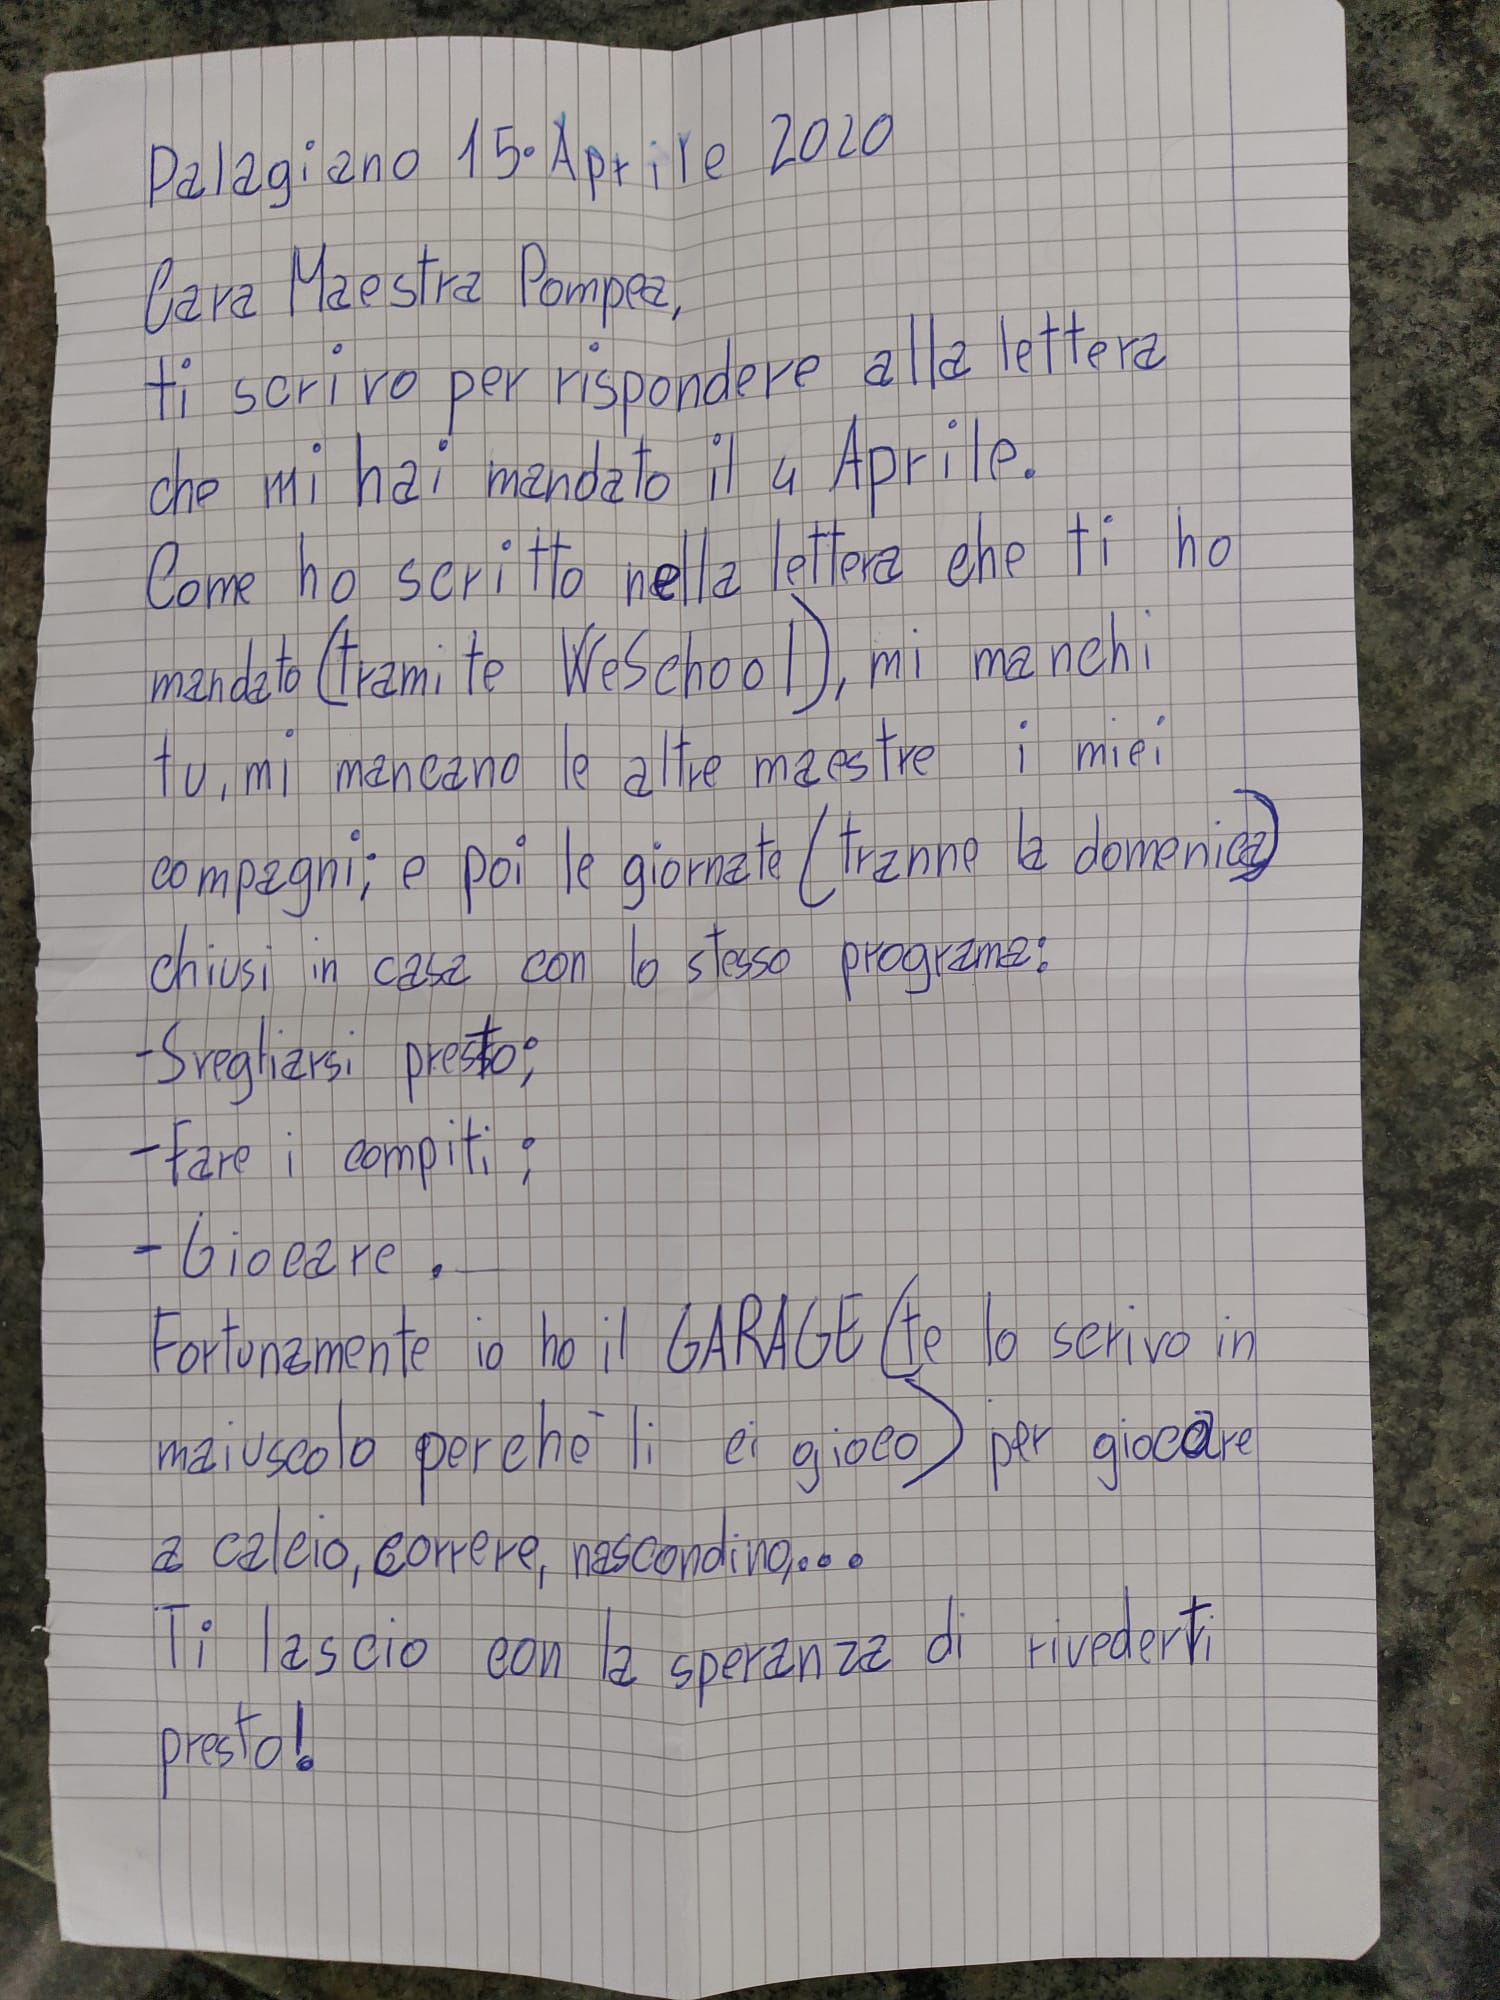 Palagiano 15·Aprile 2020
Cara Maestra Pompea,
ti scrivo per rispondere alla lettera
che mi hai mandato il 4 Aprile.
Come ho scritto nella lettera che ti ho
mandato (tramite WeSchool), mi manchi
tu, mi mancano le altre maestre i miei
compagni; e poi le giornate (tranne la domenica)
chiusi in casa con lo stesso programa:
-Svegliarsi presto;
-fare i compiti;
-Giocare.
Fortunamente io ho il GARAGE (te lo scrivo in
maiuscolo perchè li ci gioco) per giocare
a calcio, correre, nascondino...
Ti lascio con la speranza di rivederti
presto!